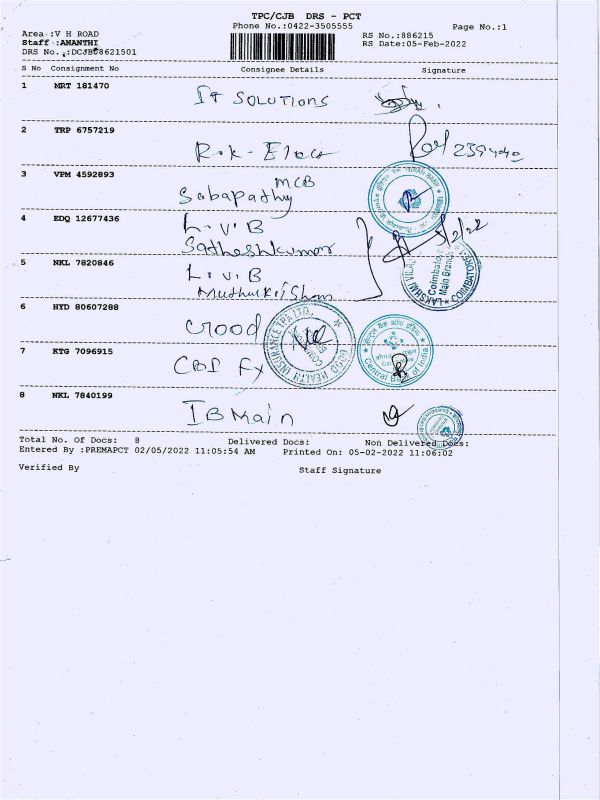 TPC/CJB DRS - PCT
Phone No.:0422-3505555
Page No.:1
Area :V H ROAD
RS No.:886215
Staff :ANANTHI
RS Date:05-Feb-2022
DRS No. :DCJB08621501
S No Consignment No Consignee Details Signature
1 MRT 181470 IT SOLUTIONS
2 TRP 6757219 R.K- Elecs
3 VPM 4592893 Sabapathy MCB
4 EDQ 12677436 L.V.B
Satheshkumar 5/2/22
5 NKL 7820846 L.V.B
6 HYD 80607288 Good
7 KTG 7096915 CBI Fx
Central Bank of India
8 NKL 7840199 IB Main
Total No. Of Docs: 8 Delivered Docs: Non Delivered Docs:
Entered By :PREMAPCT 02/05/2022 11:05:54 AM Printed On: 05-02-2022 11:06:02
Verified By Staff Signature